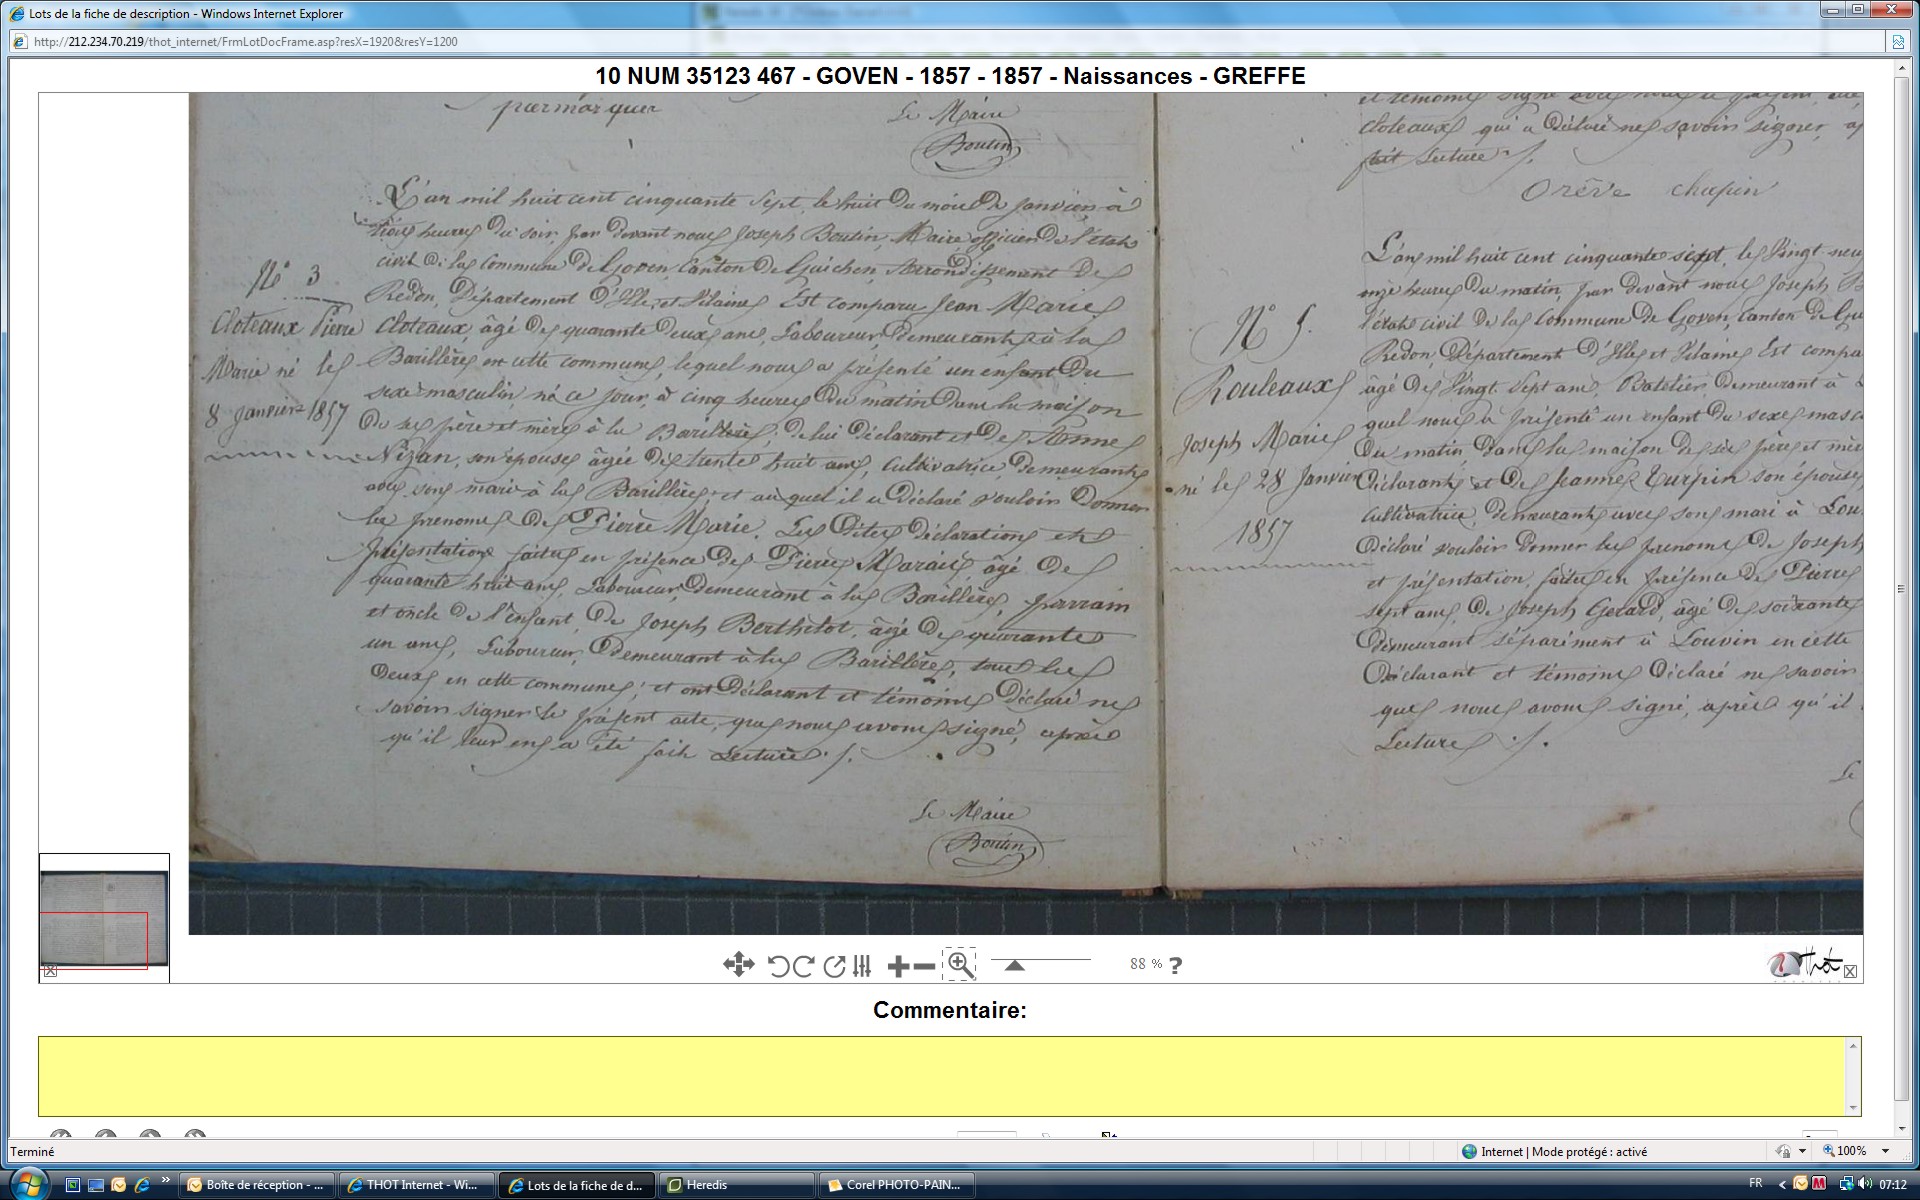 Lots de la fiche de description - Windows Internet Explorer
http://212.234.70.219/thot_internet/FrmLotDocFrame.asp?resX=1920&resY=1200
10 NUM 35123 467 - GOVEN - 1857 - 1857 - Naissances - GREFFE
par marquer
Le Maire
Boutin
L'an mil huit cent cinquante sept, le huit du mois de janvier, à
trois heures du soir, par devant nous Joseph Boutin, Maire officier de l'état
civil de la commune de Goven, Canton de Guichen, Arrondissement de
Redon, Département d'Ille et Vilaine, Est comparu Jean Marie
Cloteaux, âgé de quarante deux ans, Laboureur, demeurant à la
Barillère en cette commune, lequel nous a présenté un enfant du
sexe masculin, né ce jour, à cinq heures du matin dans la maison
de ses père et mère à la Barillère, de lui déclarant et de Anne
Nizan, son épouse, âgée de trente huit ans, cultivatrice, demeurant
avec son mari à la Barillère, et auquel il a déclaré vouloir donner
les prenoms de Pierre Marie. Les dites déclaration et
présentation faites en présence de Pierre Marais, âgé de
quarante huit ans, Laboureur, demeurant à la Barillère, parrain
et oncle de l'enfant, de Joseph Berthelot, âgé de quarante
un ans, Laboureur, demeurant à la Barillère, tous les
deux en cette commune; et ont déclarant et témoins déclaré ne
savoir signer le présent acte, que nous avons signé, après
qu'il leur en a été fait Lecture ./.
Le Maire
Boutin
N° 3
Cloteaux Pierre
Marie né le
8 Janvier 1857
et témoins signé avec nous
Cloteaux qui a déclaré ne savoir signer, ap
fait Lecture ./.
Orêve chapin
L'an mil huit cent cinquante sept, le Vingt neuf
onze heures du matin, par devant nous Joseph B
l'état civil de la Commune de Goven, Canton de Gu
Redon, Département d'Ille et Vilaine Est compa
âgé de Vingt Sept ans, Batelier, demeurant à
quel nous a présenté un enfant du sexe masc
du matin dans la maison de ses père et mèr
déclarant et de Jeanne Turpin son épouse,
cultivatrice, demeurant avec son mari à Lou
déclaré vouloir donner les prenoms de Joseph
et présentation, faites en présence de Pierre
sept ans, de Joseph Gerard, âgé de soixante
demeurant séparément à Louvin en cette
déclarant et témoins déclaré ne savoir
que nous avons signé, après qu'il
Lecture ./.
Le
N° 5.
Rouleaux
Joseph Marie
né le 28 Janvier
1857
88 % ?
Thot
Commentaire:
Terminé
Internet | Mode protégé : activé
100%
Boîte de réception - ...
THOT Internet - Wi...
Lots de la fiche de d...
Heredis
Corel PHOTO-PAIN...
FR
07:12